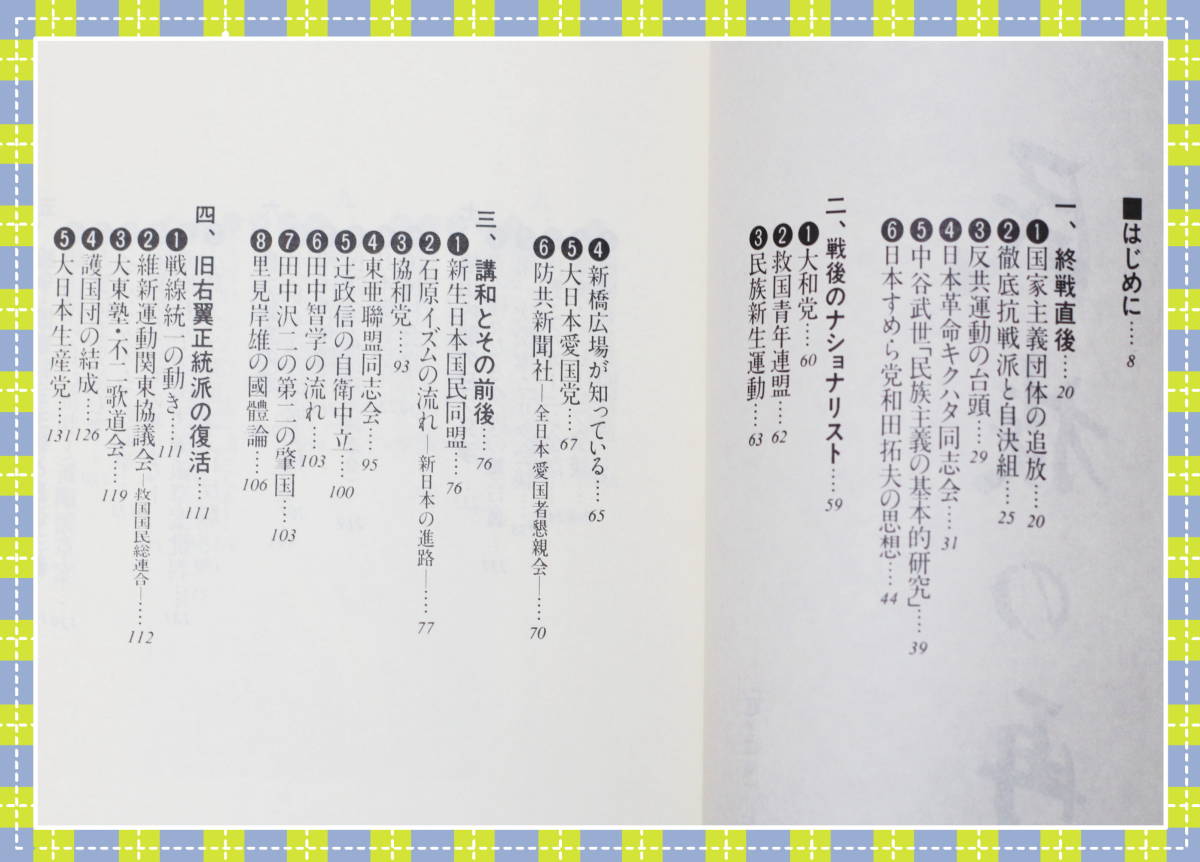 ■はじめに……8
一、終戦直後……20
❶国家主義団体の追放……20
❷徹底抗戦派と自決組……25
❸反共運動の台頭……29
❹日本革命キクハタ同志会……31
❺中谷武世「民族主義の基本的研究」……39
❻日本すめら党和田拓夫の思想……44
二、戦後のナショナリスト……59
❶大和党……60
❷救国青年連盟……62
❸民族新生運動……63
❹新橋広場が知っている……65
❺大日本愛国党……67
❻防共新聞社―全日本愛国者懇親会―……70
三、講和とその前後……76
❶新生日本国民同盟……76
❷石原イズムの流れ―新日本の進路―……77
❸協和党……93
❹東亜聯盟同志会……95
❺辻政信の自衛中立……100
❻田中智学の流れ……103
❼田中沢二の第二の肇国……103
❽里見岸雄の國體論……106
四、旧右翼正統派の復活……111
❶戦線統一の動き……111
❷維新運動関東協議会―救国国民総連合―……112
❸大東塾・不二歌道会……119
❹護国団の結成……126
❺大日本生産党……131